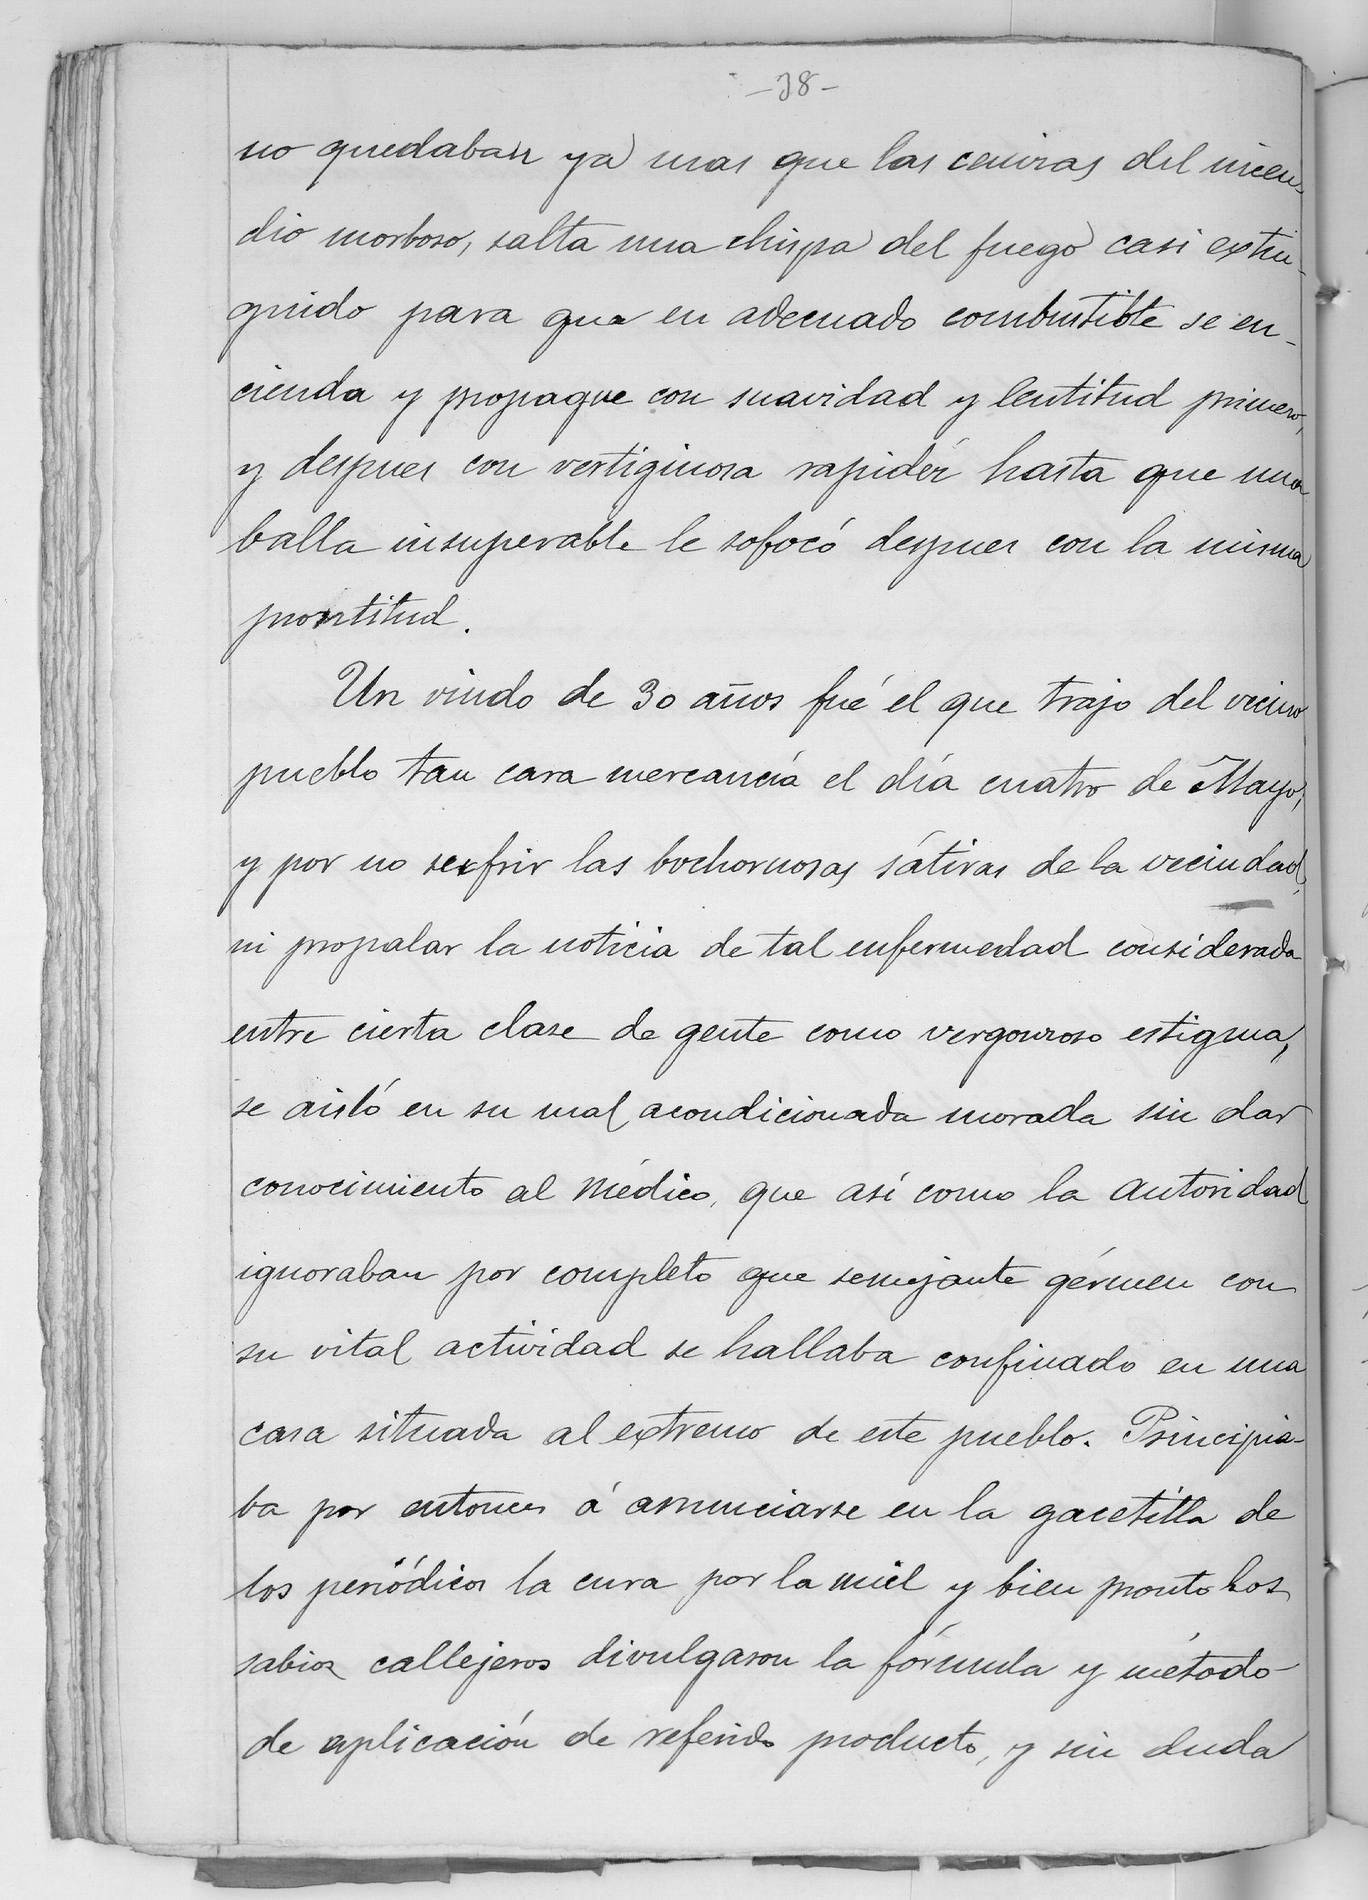 -38-
no quedaban ya mas que las cenizas del incen-
dio morboso, salta una chispa del fuego casi extin-
guido para que en adecuado combustible se en-
cienda y propague con suavidad y lentitud primero,
y despues con vertiginosa rapidéz hasta que una
balla insuperable le sofocó despues con la misma
prontitud.
Un viudo de 30 años fué el que trajo del vecino
pueblo tan cara mercancía el día cuatro de Mayo;
y por no sufrir las bochornosas sátiras de la vecindad,
ni propalar la noticia de tal enfermedad considerada
entre cierta clase de gente como vergonzoso estigma,
se aisló en su mal acondicionada morada sin dar
conocimiento al médico, que así como la autoridad
ignoraban por completo que semejante gérmen con
su vital actividad se hallaba confinado en una
casa situada al extremo de este pueblo. Principia-
ba por entonces á anunciarse en la gacetilla de
los periódicos la cura por la miel y bien pronto los
sabios callejeros divulgaron la fórmula y método
de aplicación de referido producto, y sin duda